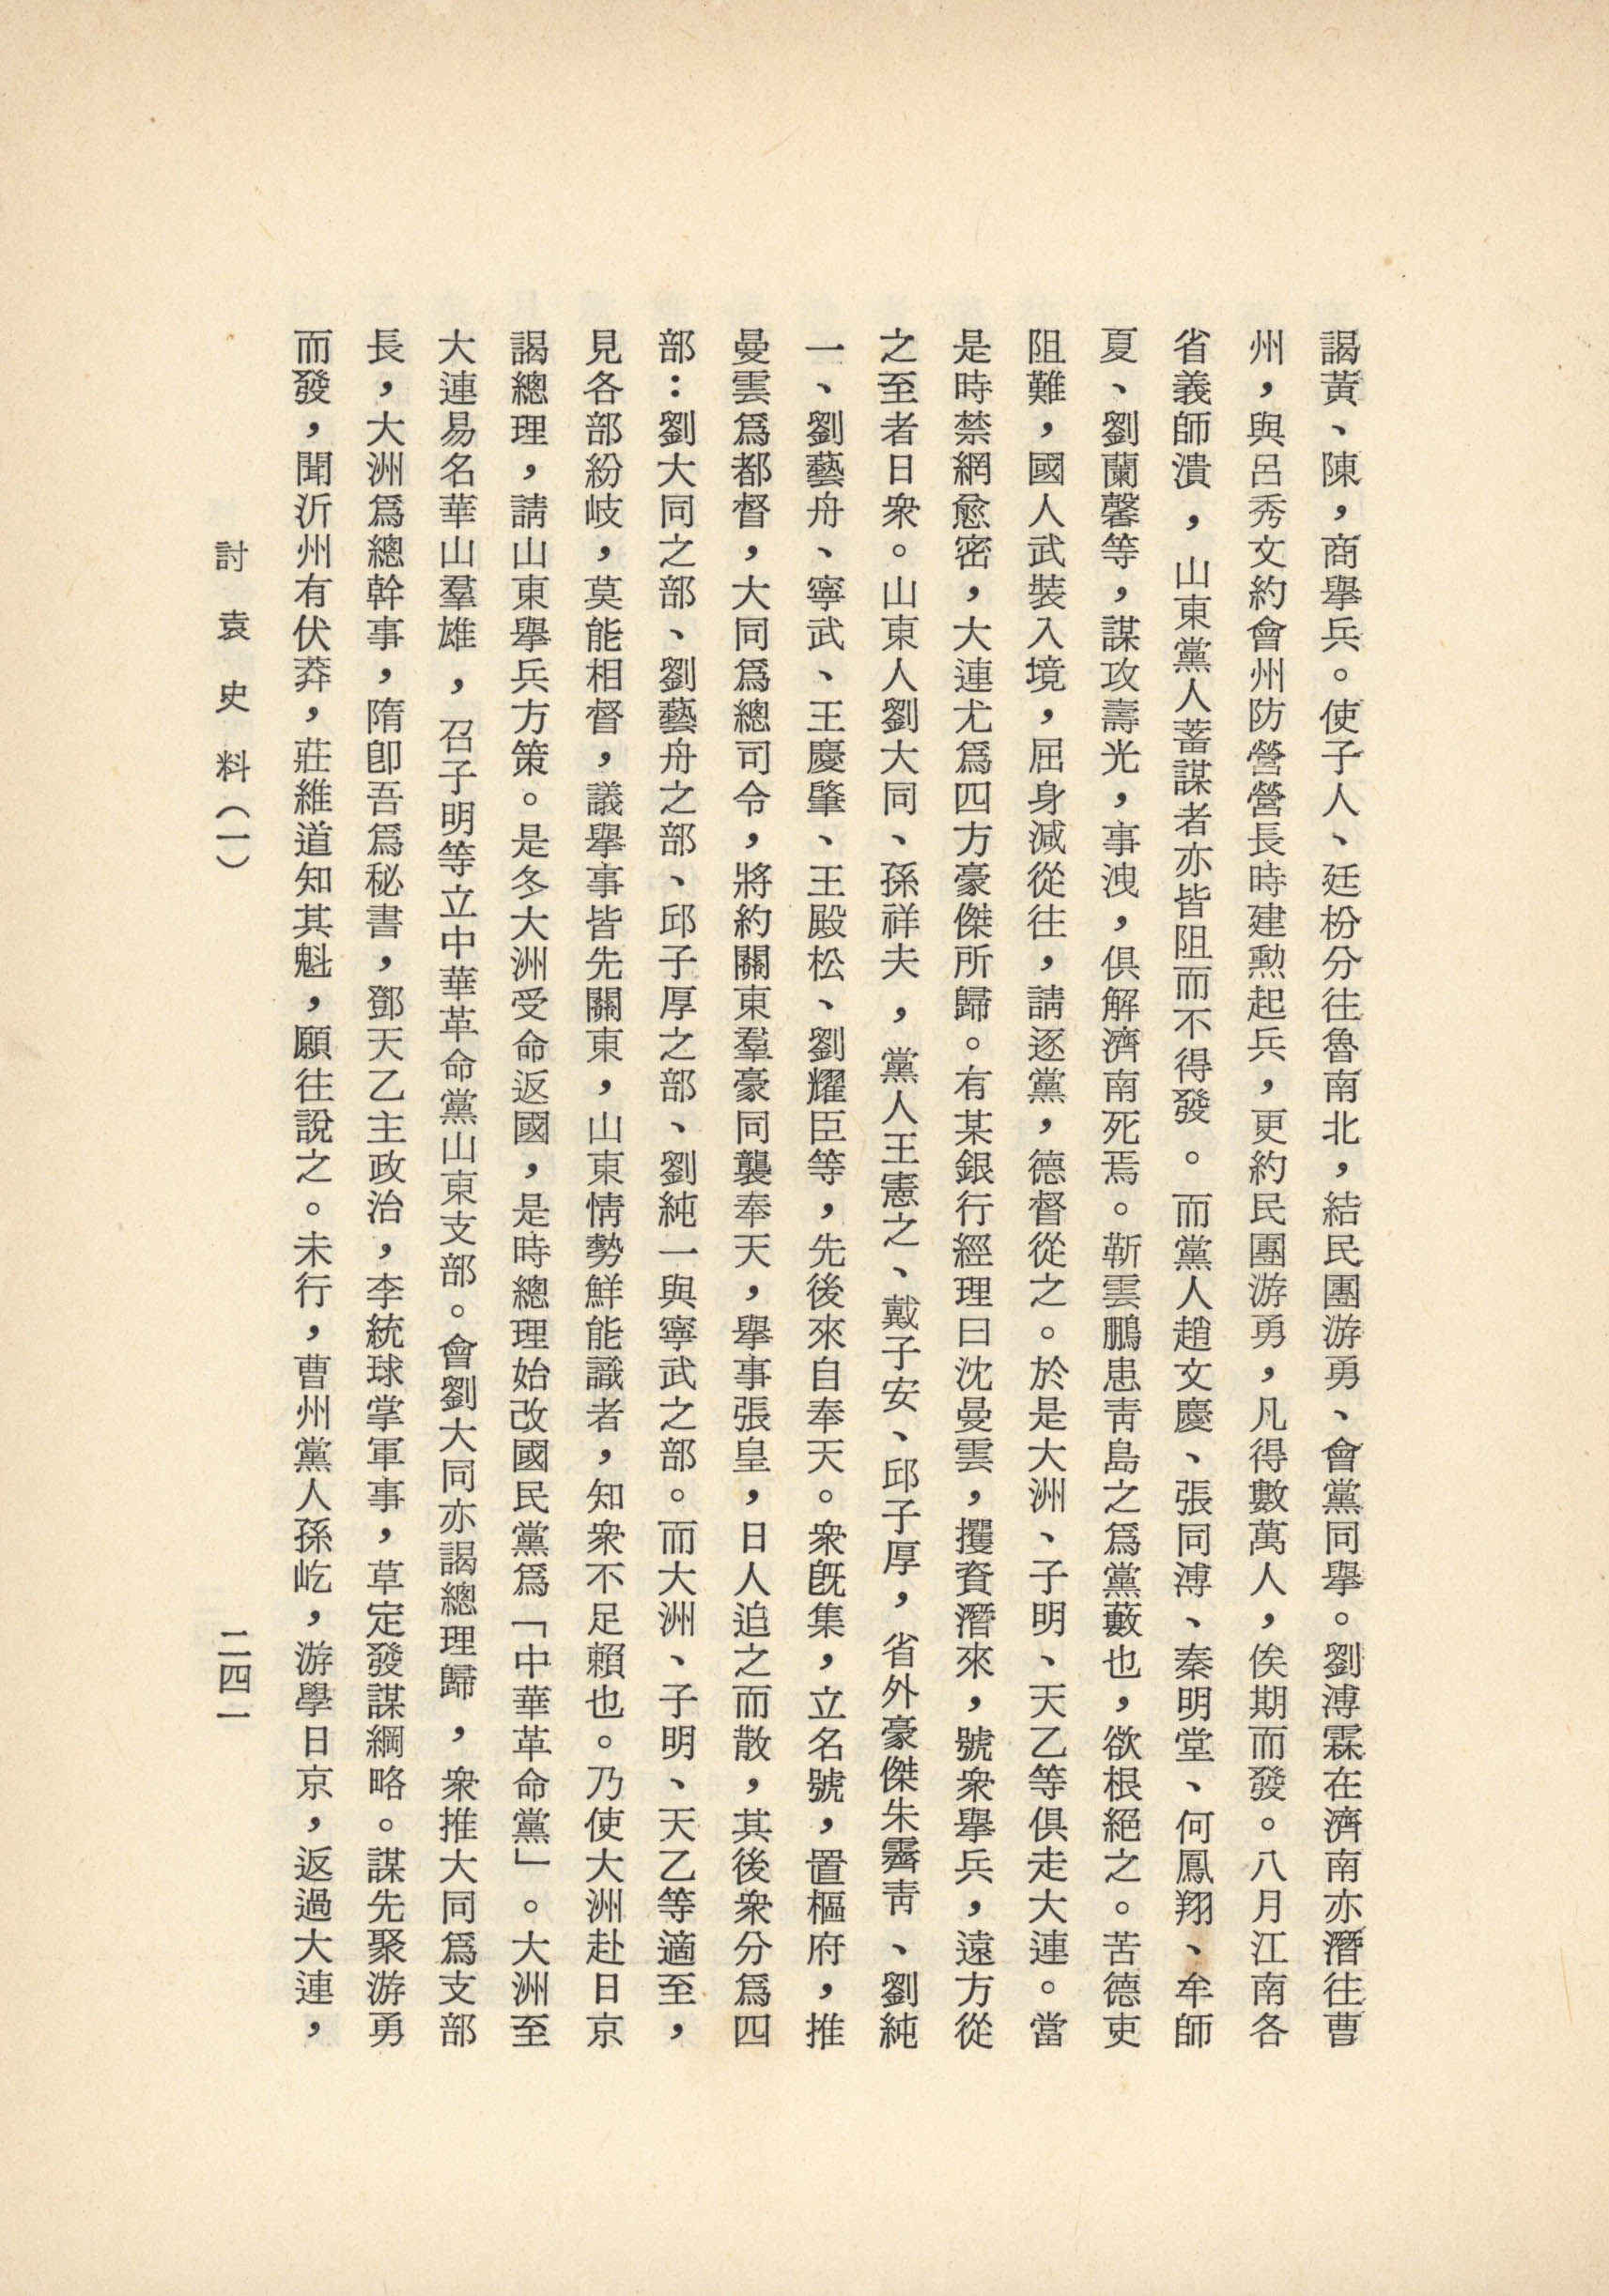 謁黃、陳，商舉兵。使子人、廷枌分往魯南北，結民團游勇、會黨同舉。劉溥霖在濟南亦潛往曹
州，與呂秀文約會州防營營長時建勳起兵，更約民團游勇，凡得數萬人，俟期而發。八月江南各
省義師潰，山東黨人蓄謀者亦皆阻而不得發。而黨人趙文慶、張同溥、秦明堂、何鳳翔、牟師
夏、劉蘭馨等，謀攻壽光，事洩，俱解濟南死焉。靳雲鵬患靑島之爲黨藪也，欲根絕之。苦德吏
阻難，國人武裝入境，屈身減從往，請逐黨，德督從之。於是大洲、子明、天乙等俱走大連。當
是時禁網愈密，大連尤爲四方豪傑所歸。有某銀行經理曰沈曼雲，攫資潛來，號衆舉兵，遠方從
之至者日衆。山東人劉大同、孫祥夫，黨人王憲之、戴子安、邱子厚，省外豪傑朱霽靑、劉純
一、劉藝舟、寧武、王慶肇、王殿松、劉耀臣等，先後來自奉天。衆旣集，立名號，置樞府，推
曼雲爲都督，大同爲總司令，將約關東羣豪同襲奉天，舉事張皇，日人追之而散，其後衆分爲四
部：劉大同之部、劉藝舟之部、邱子厚之部、劉純一與寧武之部。而大洲、子明、天乙等適至，
見各部紛岐，莫能相督，議舉事皆先關東，山東情勢鮮能識者，知衆不足賴也。乃使大洲赴日京
謁總理，請山東舉兵方策。是冬大洲受命返國，是時總理始改國民黨爲「中華革命黨」。大洲至
大連易名華山羣雄，召子明等立中華革命黨山東支部。會劉大同亦謁總理歸，衆推大同爲支部
長，大洲爲總幹事，隋卽吾爲秘書，鄧天乙主政治，李統球掌軍事，草定發謀綱略。謀先聚游勇
而發，聞沂州有伏莽，莊維道知其魁，願往說之。未行，曹州黨人孫屹，游學日京，返過大連，
討袁史料（一）
二四一